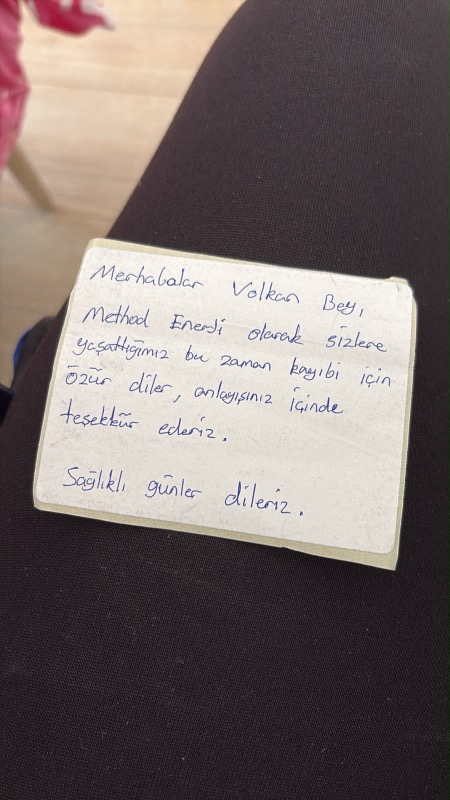 Merhabalar Volkan Bey,
Method Enerji olarak sizlere
yaşattığımız bu zaman kayıbi için
özür diler, anlayışınız içinde
teşekkür ederiz.
Sağlıklı günler dileriz.